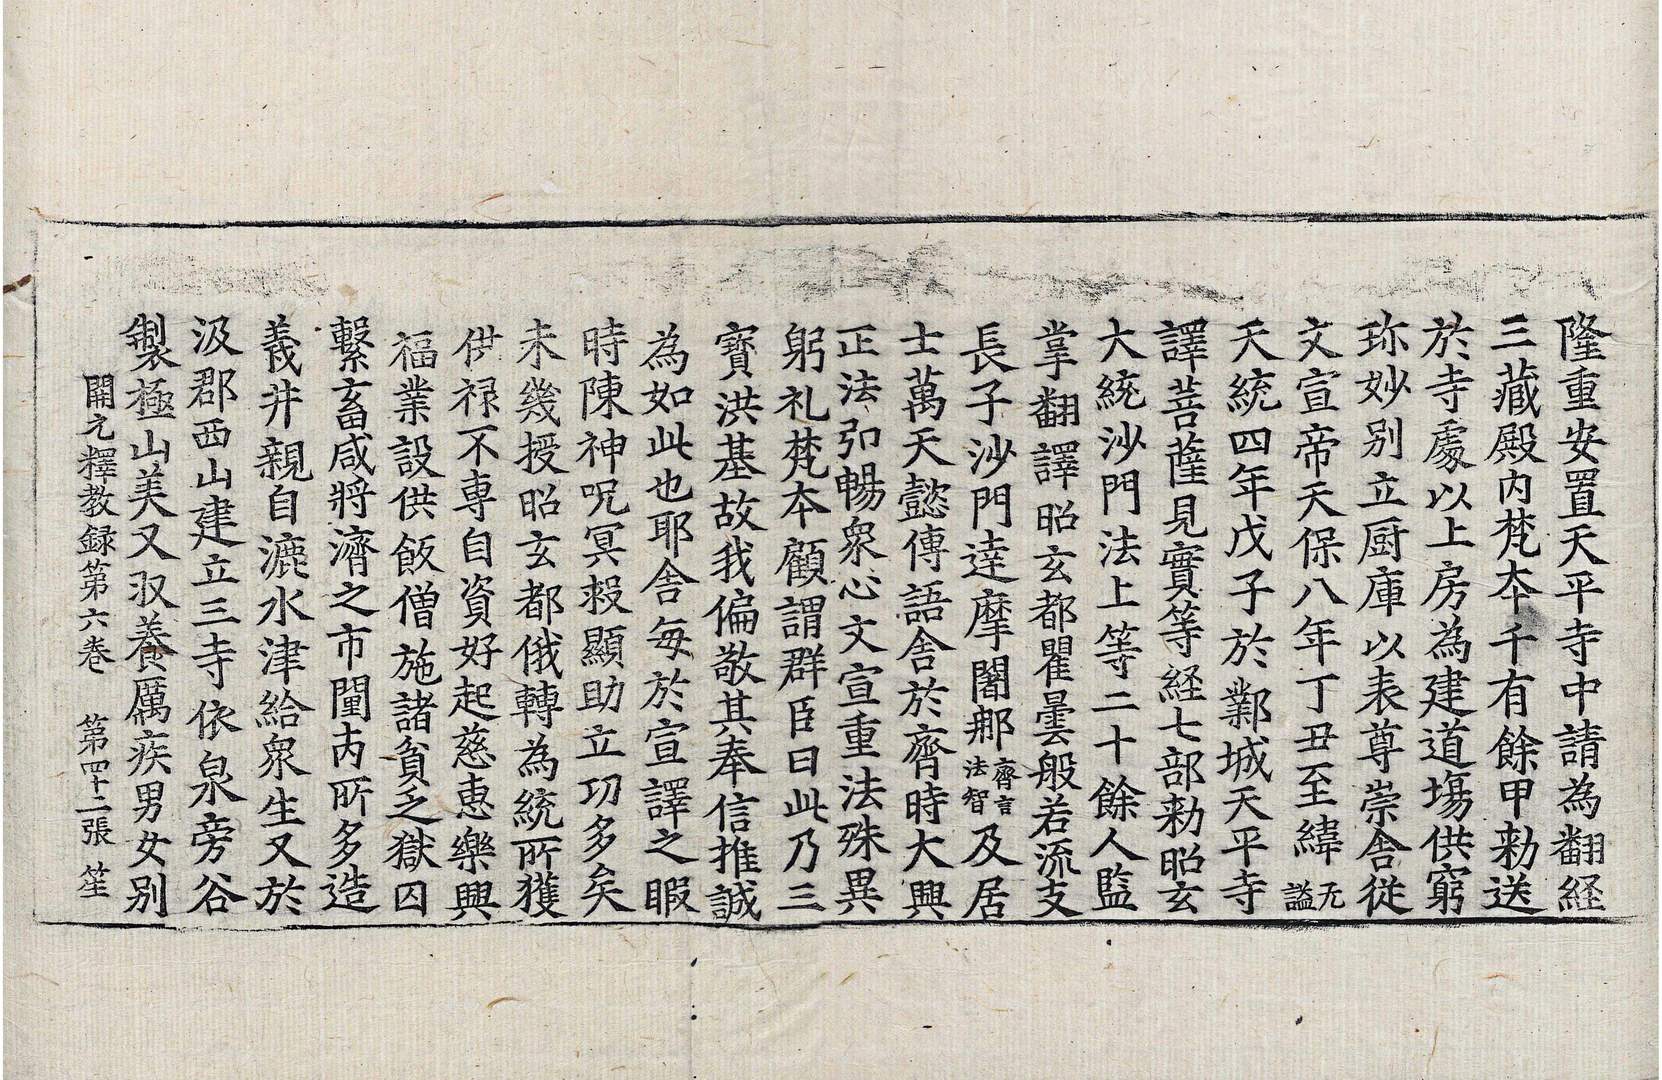 隆重安置天平寺中請為翻経
三藏殿内梵夲千有餘甲勑送
於寺處以上房為建道塲供窮
珎妙别立厨庫以表尊崇舎従
文宣帝天保八年丁丑至緯无謚
天統四年戊子於鄴城天平寺
譯菩薩見實等経七部勑昭玄
大統沙門法上等二十餘人監
掌翻譯昭玄都瞿曇般若流支
長子沙門達摩闍那齊言法智及居
士萬天懿傳語舎於齊時大興
正法弘暢衆心文宣重法殊異
躬礼梵夲顧謂群臣曰此乃三
寶洪基故我偏敬其奉信推誠
為如此也耶舎每於宣譯之暇
時陳神呪冥救顯助立功多矣
未幾授昭玄都俄轉為統所獲
供禄不専自資好起慈惠樂興
福業設供飯僧施諸貧乏獄囚
繫畜咸將濟之市闤内所多造
義井親自漉水津給衆生又於
汲郡西山建立三寺依泉旁谷
製極山美又収養厲疾男女别
開元釋教録第六巻　第四十二張　笙